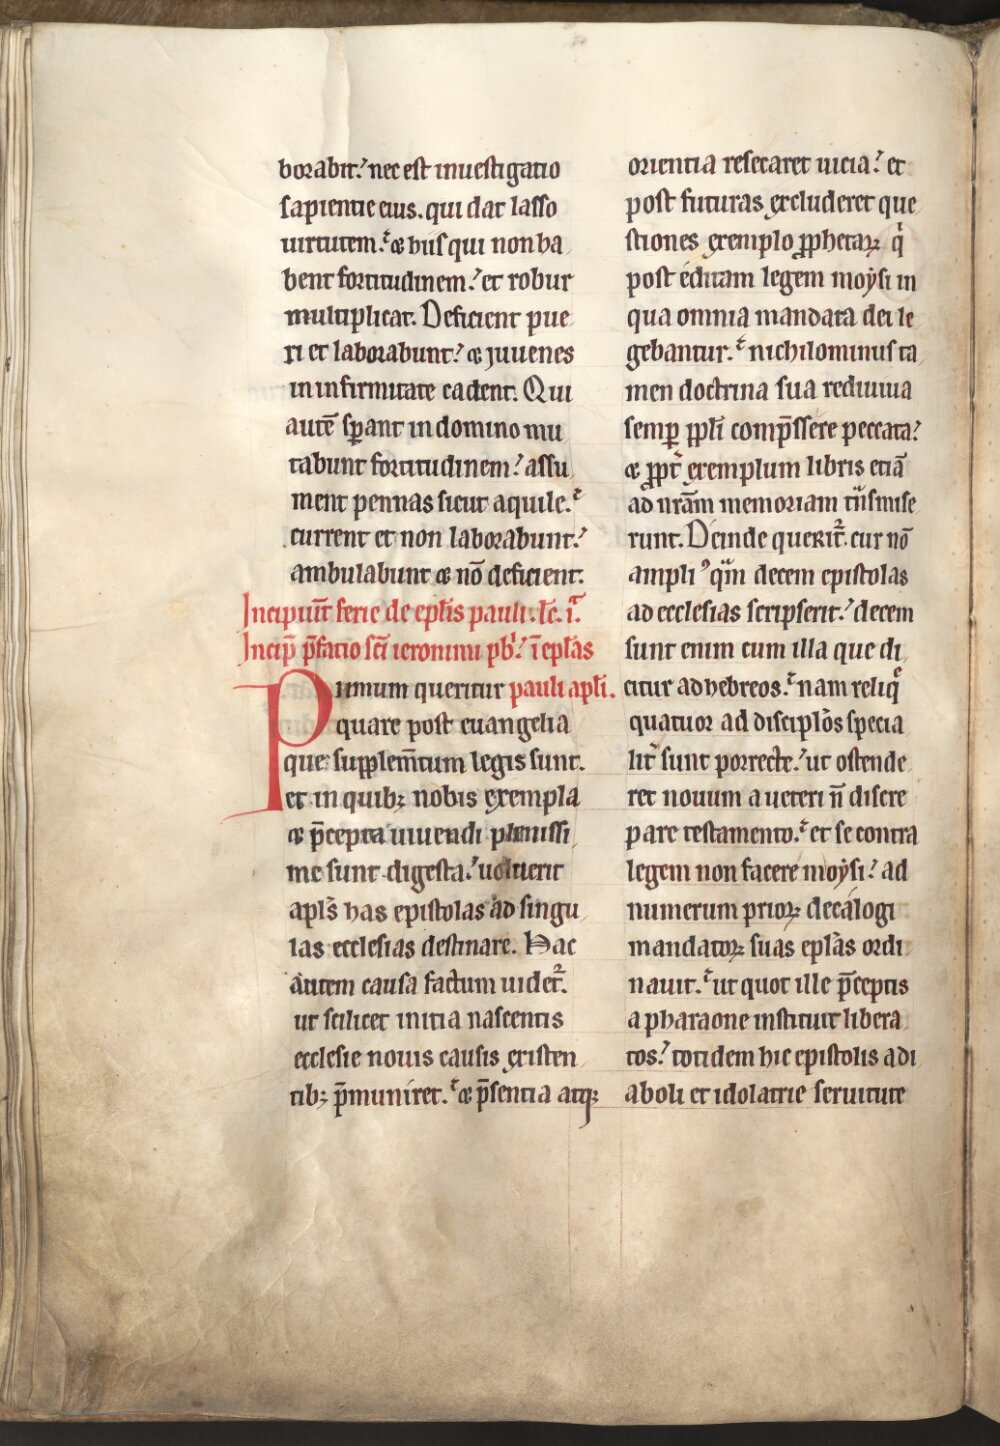 borabit. nec est inuestigatio
sapientie eius. qui dat lasso
uirtutem. & hiis qui non ha
bent fortitudinem. et robur
multiplicat. Deficient pue
ri et laborabunt. & juuenes
in infirmitate cadent. Qui
autē sꝑant in domino mu
tabunt fortitudinem. assu
ment pennas sicut aquile.
current et non laborabunt.
ambulabunt & nō deficient.
Incipiūt serie de epl̄is pauli. lc̄. i.
Incip̄ p̄fatio sc̄i ieronimi pb̄r. ī epl̄as
Primum queritur pauli apl̄i.
quare post euangelia
que supplem̄tum legis sunt.
et in quibꝫ nobis exempla
& p̄cepta uiuendi plenissi
me sunt digesta. uoluerit
apl̄s has epistolas ad singu
las ecclesias destinare. Hac
autem causa factum uidet̄.
ut scilicet initia nascentis
ecclesie nouis causis existen
tibꝫ p̄muniret. & p̄sentia atqꝫ
orientia resecaret uicia. et
post futuras excluderet que
stiones exemplo ꝓphetaꝝ q̇
post editam legem moysi in
qua omnia mandata dei le
gebantur. nichilominus ta
men doctrina sua rediuiua
semꝑ ppl̄i comp̄ssere peccata.
& ꝓpt̄ exemplum libris etiā
ad nr̄am memoriam t̄nsmise
runt. Deinde querit̄. cur nō
ampliꝰ qm̄ decem epistolas
ad ecclesias scripserit. decem
sunt enim cum illa que di
citur ad hebreos. nam reliq̄
quatuor ad discipl̄os specia
lit̄ sunt porrecte. ut ostende
ret nouum a ueteri n̄ discre
pare testamento. et se contra
legem non facere moysi. ad
numerum prioꝝ decalogi
mandatoꝝ suas epl̄as ordi
nauit. ut quot ille p̄ceptis
a pharaone instituit libera
tos. totidem hic epistolis a di
aboli et idolatrie seruitute